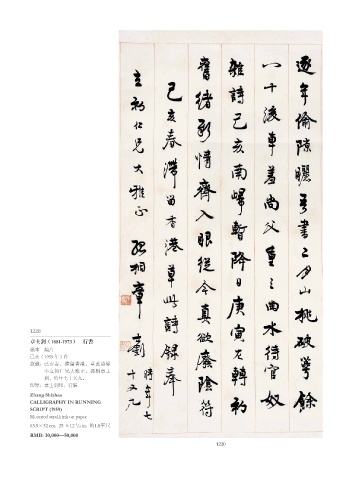 逐年偷隙曬吾書二月山桃破萼餘
八十後車尚父重三曲水待官奴
雜詩己亥南歸暫降日庚寅左轉初
舊緒影情齊入眼從今真欲廢陰符
己亥春滯留香港草此詩錄奉
立初仁兄大雅正 孤桐章士釗 時年七十又九
1220
章士釗(1881-1973) 行書
紙本 鏡片
己亥(1959年)作
款識:己亥春,滯留香港,草此詩錄
奉立初仁兄大雅正,孤桐章士
釗,時年七十又九。
印鑒:章士釗印、行嚴
Zhang Shizhao
CALLIGRAPHY IN RUNNING
SCRIPT (1959)
Mounted scroll; ink on paper
32 cm. 約1.8平尺
RMB: 30,000—50,000
1220